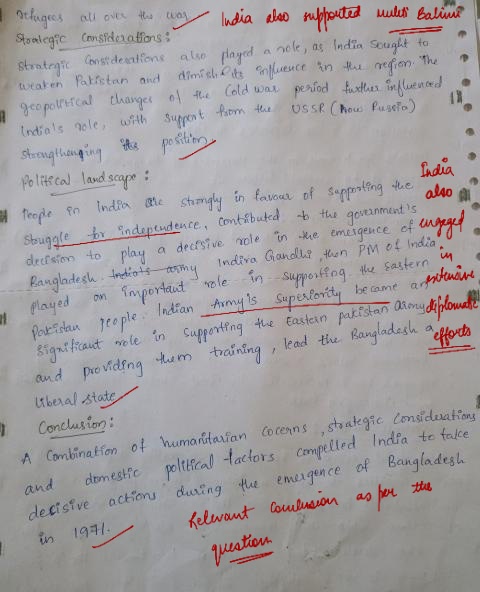 refugees all over the war. India also supported Mukti Bahini
Strategic Considerations:
Strategic Considerations also played a role, as India sought to
weaken Pakistan and diminish its influence in the region. The
geopolitical changes of the Cold war period further influenced
India's role, with support from the USSR (now Russia)
strengthening its position
Political landscape:
People in India are strongly in favour of supporting the
struggle for independence, contributed to the government's
decision to play a decisive role in the emergence of
Bangladesh. India's army Indira Gandhi, then PM of India
played an important role in supporting the eastern
Pakistan people. Indian Army's Superiority became a
significant role in supporting the Eastern pakistan Army
and providing them training, lead the Bangladesh a
liberal state
India
also
engaged
in
extensive
diplomatic
efforts
Conclusion:
A Combination of humanitarian cocerns, strategic Considerations
and domestic political factors compelled India to take
decisive actions during the emergence of Bangladesh
in 1971.
Relevant Conclusion as per the
question